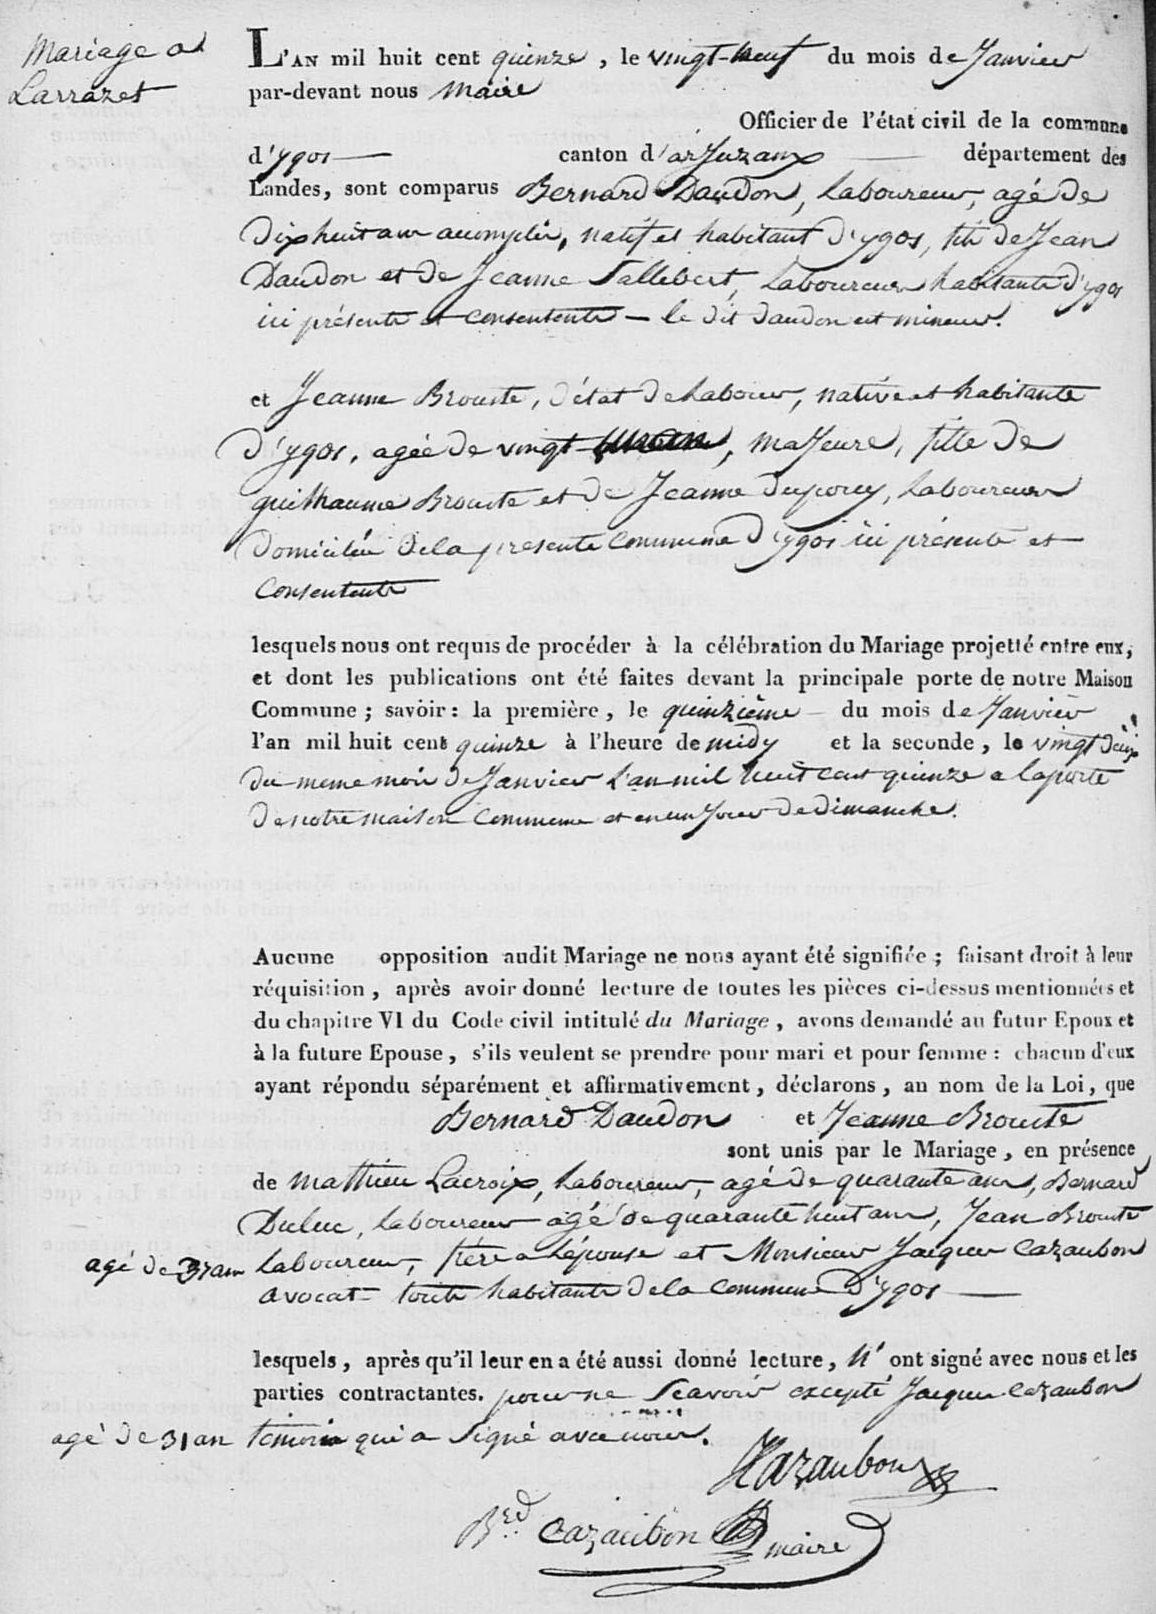 Mariage a
Larrazet
L'AN mil huit cent quinze, le vingt-neuf du mois de Janvier
par-devant nous Maire
Officier de l'état civil de la commune
d'ygos — canton d'arJuzanx — département des
Landes, sont comparus Bernard Daudon, Laboureur, agé de
Dix huit ans accomplis, natif et habitant d'ygos, fils de Jean
Daudon et de Jeanne Sallebert, Laboureurs habitants d'ygos
ici présents et consentents — le dit daudon est mineur.
et Jeanne Brouste, d'état de Labour, native et habitante
D'ygos, agée de vingt-un an, maJeure, fille de
guilhaume Brouste et de Jeanne dupouy, Laboureurs
Domiciliés de la presente Commune D'ygos ici présents et
Consentents
lesquels nous ont requis de procéder à la célébration du Mariage projetté entre eux,
et dont les publications ont été faites devant la principale porte de notre Maison
Commune ; savoir : la première, le quinzième du mois de Janvier
l'an mil huit cent quinze à l'heure de midy et la seconde, le vingt deux
du meme mois de Janvier L'an mil huit cent quinze a la porte
de notre maison Commune et en un Jour de dimanche.
Aucune opposition audit Mariage ne nous ayant été signifiée ; faisant droit à leur
réquisition, après avoir donné lecture de toutes les pièces ci-dessus mentionnées et
du chapitre VI du Code civil intitulé du Mariage, avons demandé au futur Epoux et
à la future Epouse, s'ils veulent se prendre pour mari et pour femme : chacun d'eux
ayant répondu séparément et affirmativement, déclarons, au nom de la Loi, que
Bernard Daudon et Jeanne Brouste
sont unis par le Mariage, en présence
de Mathieu Lacroix, Laboureur, agé de quarante ans, Bernard
Duluc, laboureur agé de quarante huit ans, Jean Brouste
agé de 37 ans Laboureur, frère a Lépouse et Monsieur Jacques Cazaubon
avocat touts habitants de la Commune D'ygos —
lesquels, après qu'il leur en a été aussi donné lecture, N' ont signé avec nous et les
parties contractantes. pour ne Scavoir excepté Jacques Cazaubon
agé de 31 an témoin qui a Signé avec nous.
JCazaubon
B.ed Cazaubon maire